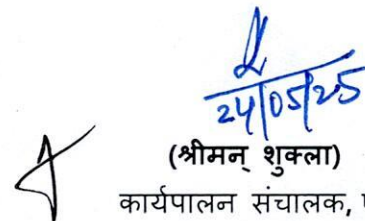 24/05/25
(श्रीमन् शुक्ला)
कार्यपालन संचालक,